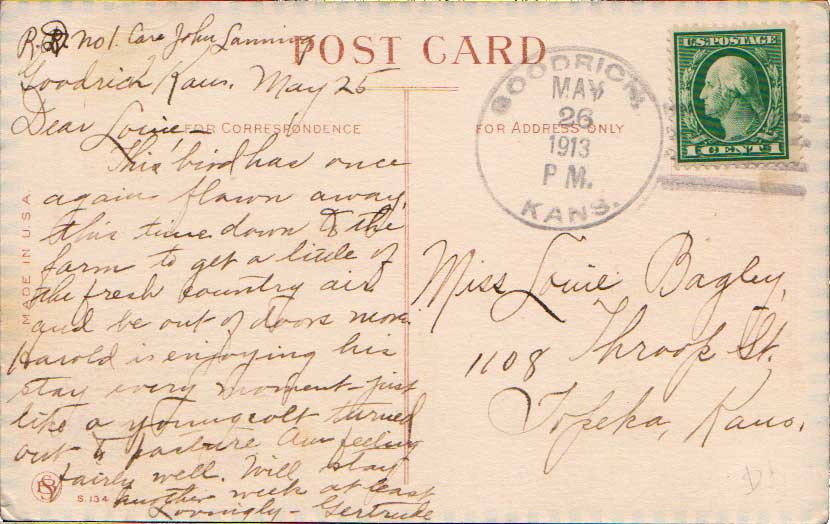 R. D. no 1. Care John Lanning
POST CARD
Goodrich Kans. May 25
Dear Louie -
FOR CORRESPONDENCE
This bird has once
again flown away,
this time down to the
farm to get a little of
the fresh country air
and be out of doors more.
Harold is enjoying his
stay every moment - just
like a young colt turned
out to pasture Am feeling
fairly well. Will stay
another week at least
Lovingly - Gertrude
MADE IN U.S.A.
S. 134
FOR ADDRESS ONLY
GOODRICH,
MAY
26
1913
P M.
KANS.
U.S. POSTAGE
1 CENT 1
Miss Louie Bagley,
1108 Throop St.
Topeka, Kans.